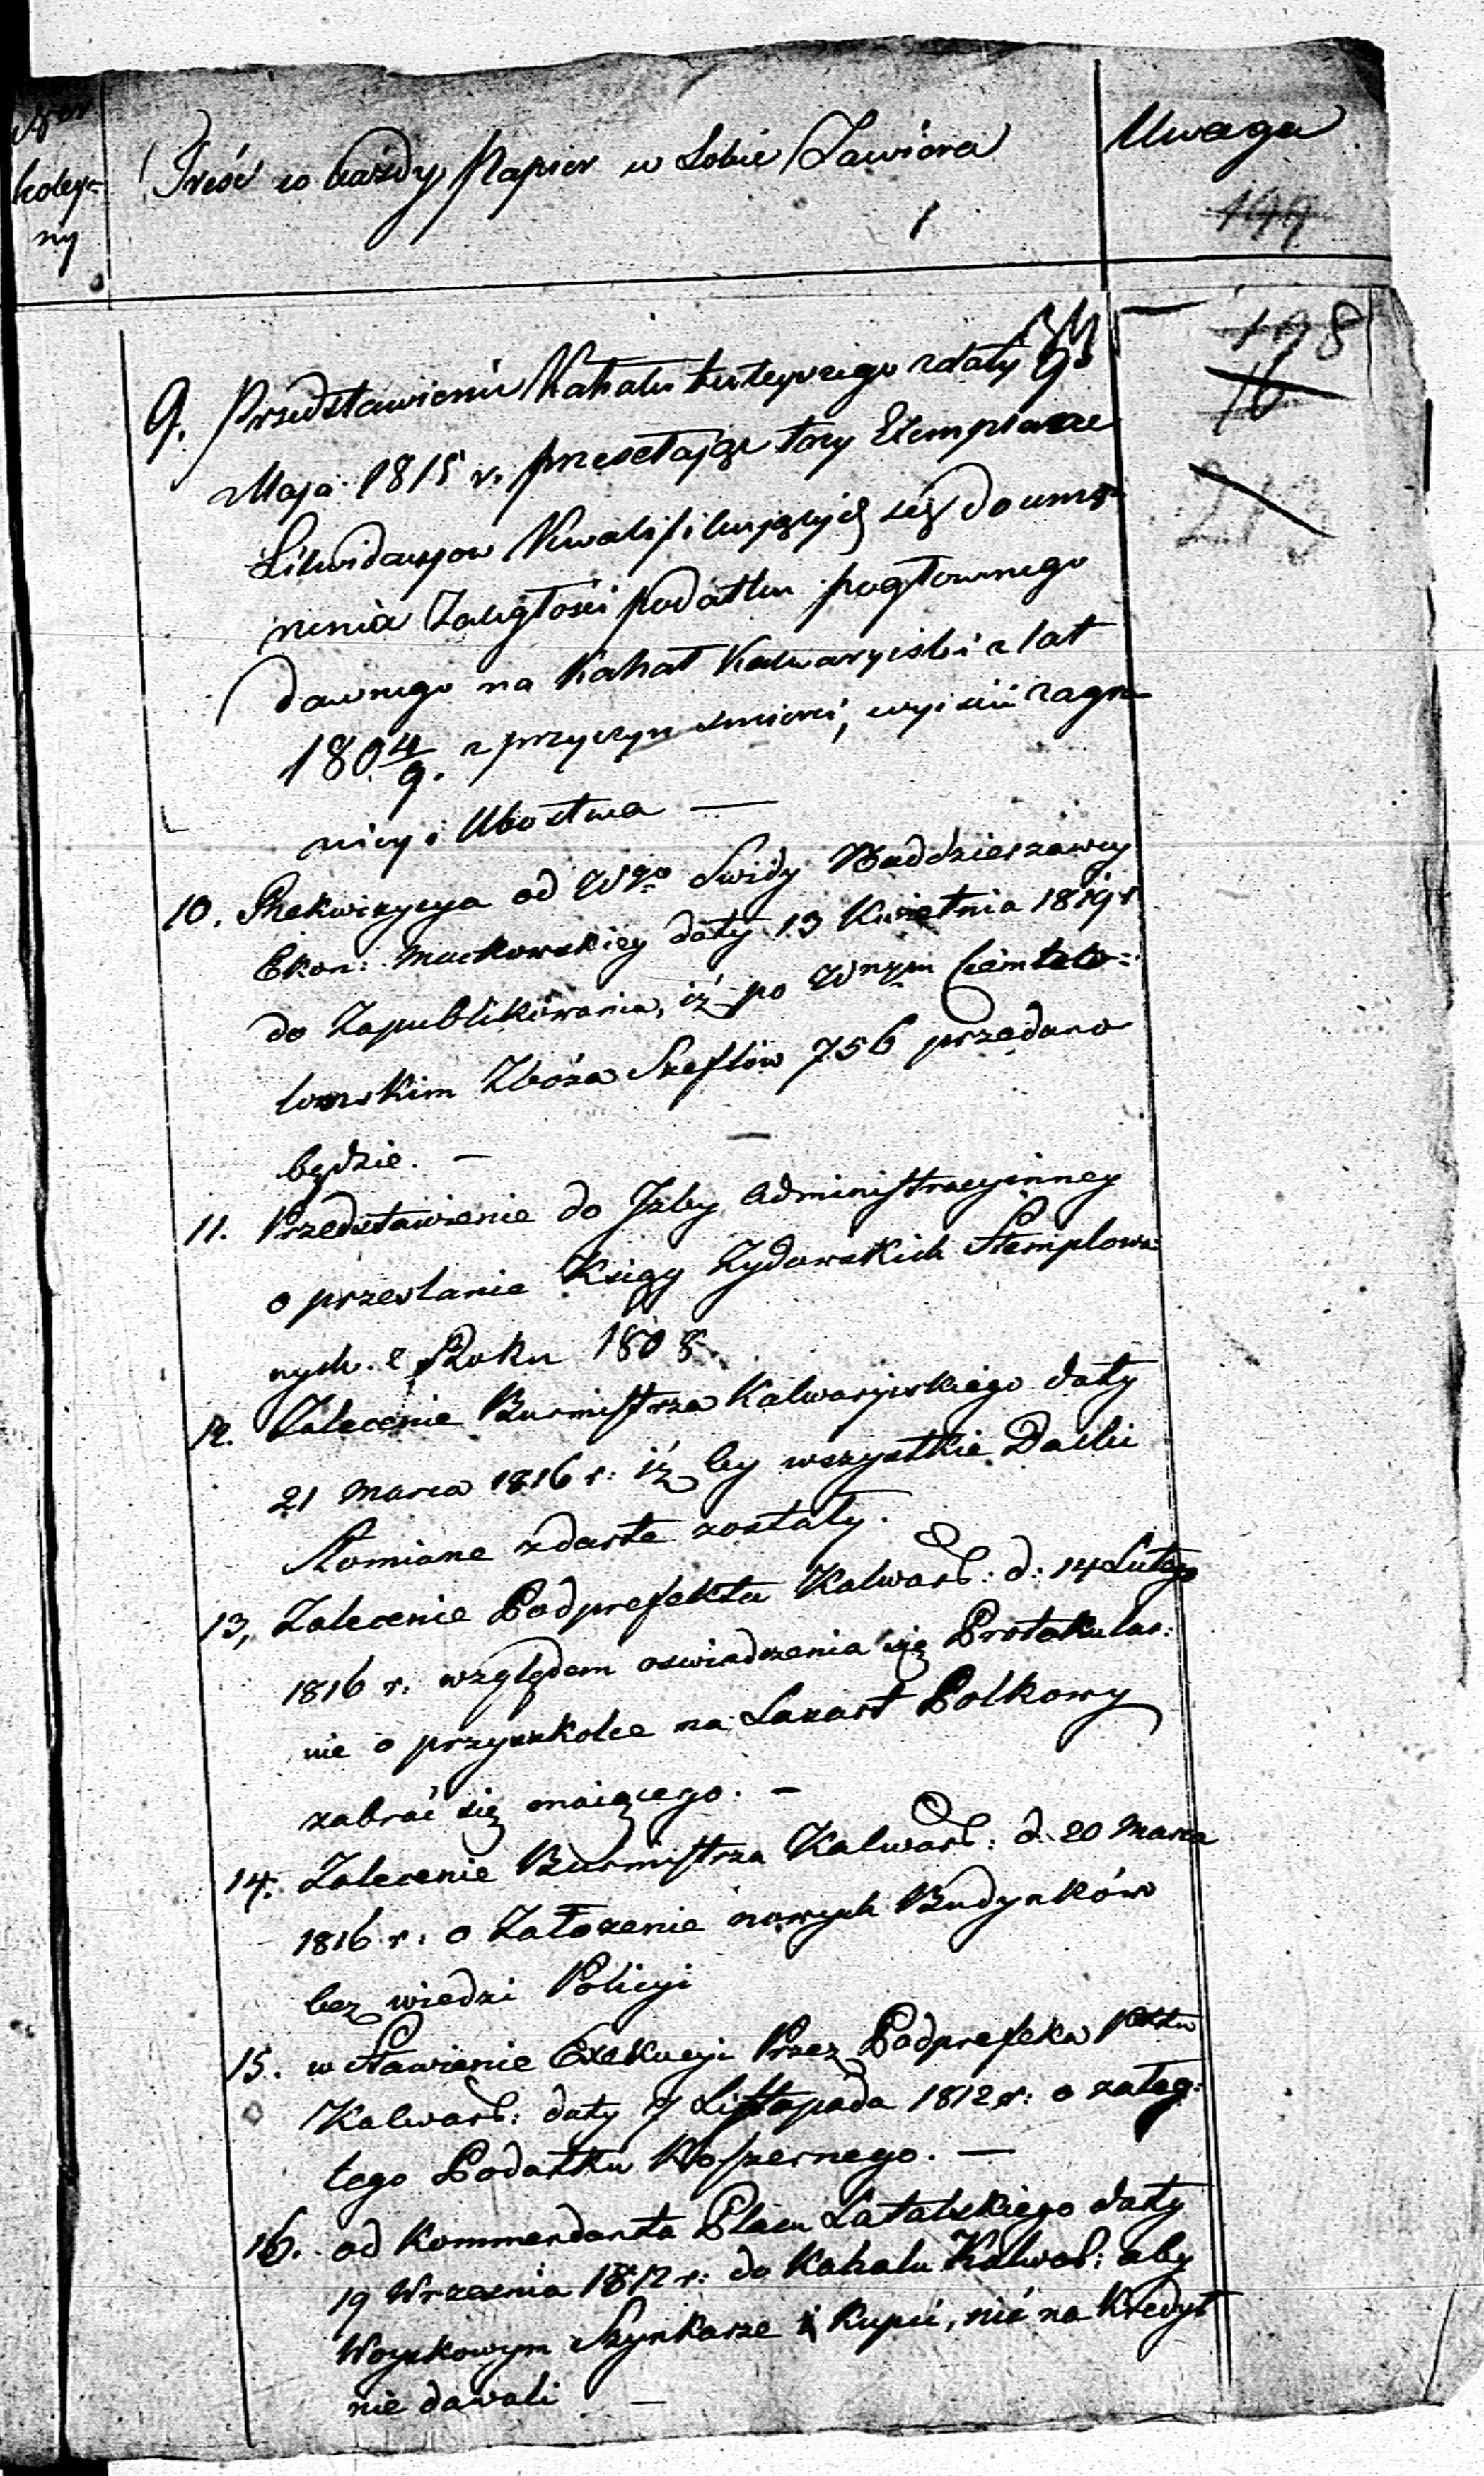 Ner
koley=
ny
Treść co każdy Papier w Sobie Zawiera
Uwaga
199
198
16
9. Przedstawienie Kahału tuteyszego z daty 9o
Maja 1815 r. przesełaiące trzy Exemplarze
Likwidacyow Kwalifikuiących się do umo
nenia Zaległości podatku pogłownego
dawnego na Kahał Kalwaryiski z lat
180 4/9. z przyczyn smierci, wyiścia zagra
nicy i Ubostwa —
10. Rekwizycya od Wgo Swidy Naddzierzawcy
Ekon: Maćkowskiey daty 13 Kwietnia 1819 r
do Zapublikowania, iż po Wnym
lowskim Zboża Szeflów 756 przedano
będzie. —
11. Przedstawienie do Izby Administracyinney
o przesłanie Księgy Zydowskich Stemplowa
nych z Roku 1808.
12. Zalecenie Burmistrza Kalwaryiskiego daty
21 Marca 1816 r: iż by wszystkie Dachi
Słomiane zdarte zostały.
13, Zalecenie Podprefekta Kalwar: d: 14 Lutego
1816 r: względem oswiadczenia się Protokular:
nie o przyszkolce na Lazaret Polkowy
zabrać się maiącego. —
14. Zalecenie Burmistrza Kalwar: d. 20 Marca
1816 r: o Założenie nowych Budynków
bez wiedzi Policyi
15. w Stawienie Exekucyi Przez Podprefekta Pttu
Kalwar: daty 7 Listopada 1812 r: o zaleg:
tego Podatku Koszernego. —
16. od Kommendanta Placu Latalskiego daty
19 Wrzesnia 1812 r: do Kahalu Kalwar: aby
Woyskowym Szynkarze i Kupci, nić na Kredyt
nie dawali —